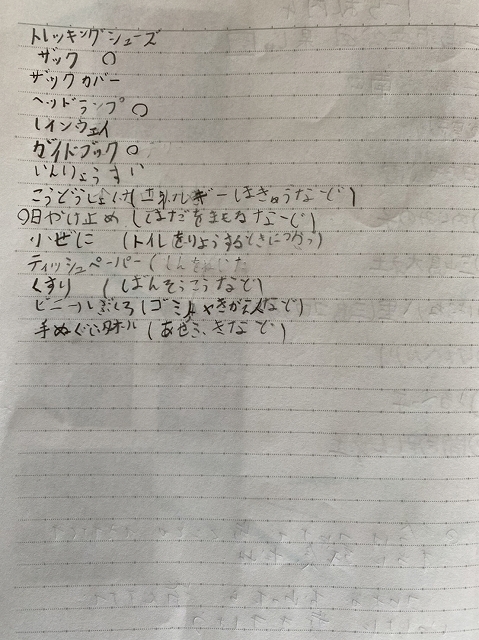 トレッキングシューズ
ザック ○
ザックカバー
ヘッドランプ ○
レインウェイ
ガイドブック○
いんりょうすい
こうどうしょく(エネルギーほきゅうなーど)
○日やけ止め(はだをまもるなーど)
小ぜに (トイレをりようするときにつかう)
ティッシュペーパー(
くすり (ばんそうこうなど)
ビニールぶくろ(ゴミ やきがえ入など)
手ぬぐいタオル(あせふきなど)